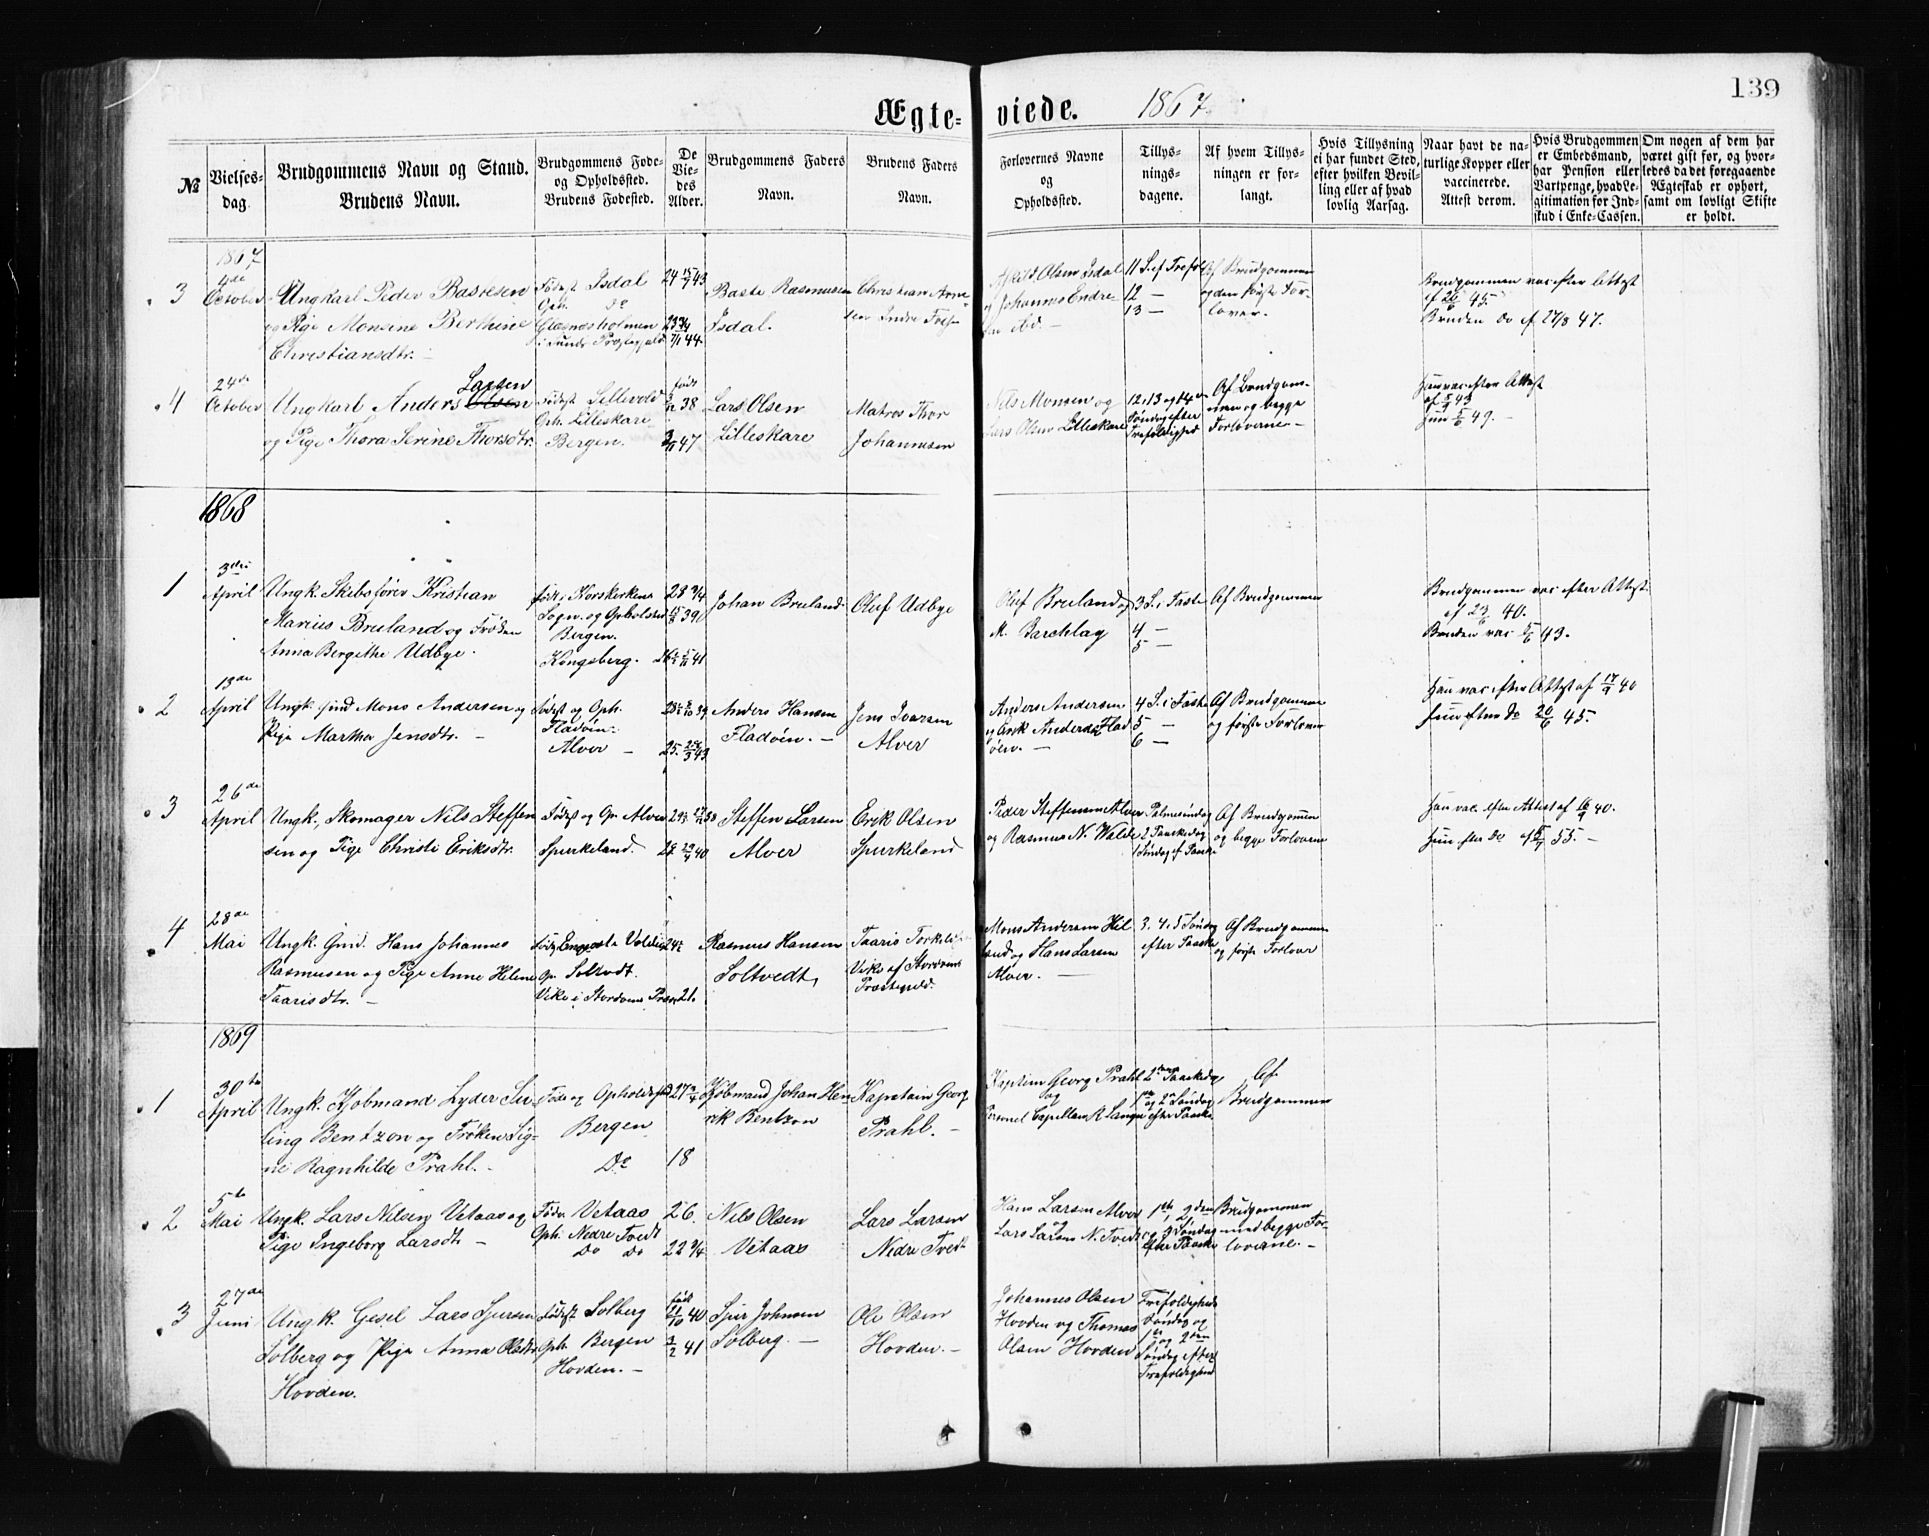 139
Ægte-viede. 1867
№
Vielses-dag.
Brudgommens Navn og Stand.
Brudens Navn.
Brudgommens Føde-
og Opholdssted.
Brudens Fødested.
De
Vie-
des
Alder.
Brudgommens Faders
Navn.
Brudens Faders
Navn.
Forlovernes Navne
og
Opholdssted.
Tillys-
nings-
dagene.
Af hvem Tillys-
ningen er for-
langt.
Hvis Tillysning
ei har fundet Sted,
efter hvilken Bevil-
ling eller af hvad
lovlig Aarsag.
Naar havt de na-
turlige Kopper eller
vaccinerede.
Attest derom.
Hvis Brudgommen
er Embedsmand,
har Pension eller
Vartpenge, hvad Le-
gitimation for Ind-
skud i Enke-Cassen.
Om nogen af dem har
været gift før, og hvor-
ledes da det foregaaende
Ægteskab er ophørt,
samt om lovligt Skifte
er holdt.
1867
3
4de
October
Ungkarl Peder Bastesen
og Pige Monsine Berthine
Christiansdtr.
Fødest Isdal
Oph. Do
Glesnæsholmen
i Sunds Præstegjeld
24 15/7 43
23 3/4
7/1 44
Baste Rasmussen
Isdal.
Christian Arne-
sen Indre
Olsen Isdal
og Johannes Endre-
sen ibd.
11 S. ef Tref
12 —
13 —
Af Brudgommen
og den første For-
lover.
Brudgommen var efter Attest
af 26/6 45.
Bruden Do af 27/8 47.
4
24de
October
Ungkarl Anders Larsen Olsen
og Pige Thora Serine Thorsdtr.
Fødest Lillevold
Oph. Lilleskare
Bergen.
født
38
47
Lars Olsen
Lilleskare
Matros Thor
Johannesen
Nils Monsen og
Lars Olsen Lilleskare
12, 13 og 14de
Søndag efter
Trefoldighed
Af Brudgom-
men og begge
Forloverne
Han var efter Attest
af 5/9 43
Hun 5/6 49.
1868
1
3die
April
Ungk. Skibsfører Kristian
Marius Bruland og Frøken
Anna Bergithe Udbye.
født i Korskirkens
Sogn og Opholdsted
Bergen.
Kongsberg.
28 3/4
39
41
Johan Bruland
Oluf Udbye
Oluf Bruland og
M. Barchlay
3 S. i Faste
4 —
5 —
Af Brudgommen
Brudgommen var efter Attest
af 23/6 40.
Bruden var 5/6 43.
2
13de
April
Ungk. Gmd Mons Andersen og
Pige Martha Jensdtr.
Fødest og Oph.
Fladøen
Alver
39
25. 43
Anders Hansen
Fladøen.
Jens Ivarsen
Alver
Anders Andersen
og Erik Andersen Flad
øen.
4 S. i Faste
5 —
6 —
Af Brudgommen
og første Forlover
Han var efter Attest af 17/9 40
Hun efter Do 20/6 45.
3
26de
April
Ungk., Skomager Nils Steffen
sen og Pige Christi Eriksdtr.
Fødest og Op Alver
Spurkeland.
38
40
Steffen Larsen
Alver
Erik Olsen
Spurkeland
Peder Steffensen Alver
og Rasmus N. Walde
Palmesøndag
2 Paaskedag
1 Søndag ef Paaske
Af Brudgommen
og begge Forloverne
Han var efter Attest af 16/9 40.
Hun efter Do 55.
4
28de
Mai
Ungk. Gmd. Hans Johannes
Rasmusen og Pige Anne Helene
Taarisdtr.
Op Soltvedt.
Vike i Stordøens Præst
24
21.
Rasmus Hansen
Soltvedt
Taaris Torkelsen
Vike af Stordøens
Præstegjeld.
Mons Andersen Hil
land og Hans Larsen
Alver.
3. 4. 5 Sønda
efter Paaske
Af Brudgommen
og første Forlover
1869
1
30te
April
Ungk. Kjøbmand Lyder Su-
ling Bentzon og Frøken Sig-
ne Ragnhilde Prahl.
Føde og Opholdsted
Bergen
Do
27 3/4
18
Kjøbmand Johan Hen
rik Bentzon
Kaptain Georg
Prahl.
Kaptein Georg Prahl
og
Personel Capellan R Lange
2den Paaskedag
1ste og 2den Søndag
efter Paaske
Af
Brudgommen
2
5te
Mai
Ungk. Lars Nilsen Vetaas og
Pige Ingeborg Larsdtr
Føde. Vetaas
Oph. Nedre Tvedt
Do Do
26.
22 3/4
Nils Olsen
Vetaas
Lars Larsen
Nedre Tvedt
Hans Larsen Alver
og
Lars Larsen N. Tvedt
1ste, 2den
og 3 Søndag
efter Paaske
Brudgommen
med begge For-
loverne.
3
27de
Juni
Ungk. Gesel Lars Sjursen
Solberg og Pige Anna Olsdtr
Hovden.
Fødest Solberg
Oph. Bergen
Hovden.
født
21/10 40
2/2 41
Sjur Johnsen
Solberg.
Ole Olsen
Hovden.
Johannes Olsen
Hovden og Thomas
Olsen Hovden
Trefoldigheds
Søndag og
1ste og 2den
Søndag efter
Trefoldighed